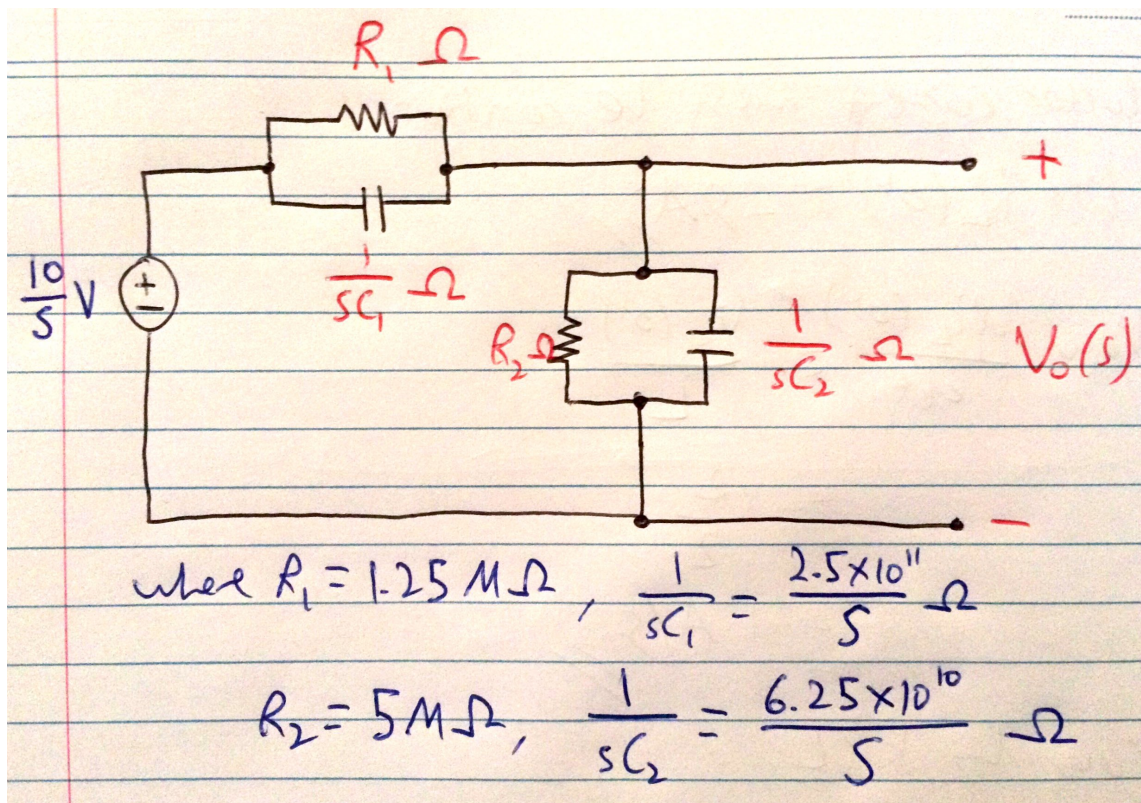 R₁ Ω
1/sC₁ Ω
10/s V
+
−
R₂ Ω
1/sC₂ Ω
+
V₀(s)
−
where R₁ = 1.25 MΩ, 1/sC₁ = 2.5×10¹¹/s Ω
R₂ = 5 MΩ, 1/sC₂ = 6.25×10¹⁰/s Ω